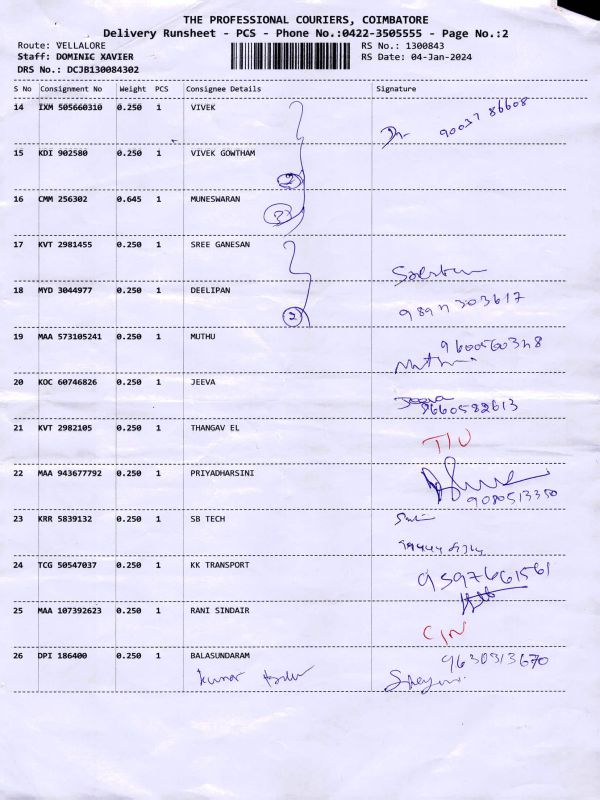 THE PROFESSIONAL COURIERS, COIMBATORE
Delivery Runsheet - PCS - Phone No.:0422-3505555 - Page No.:2
Route: VELLALORE RS No.: 1300843
Staff: DOMINIC XAVIER RS Date: 04-Jan-2024
DRS No.: DCJB130084302
S No Consignment No Weight PCS Consignee Details Signature
14 IXM 505660310 0.250 1 VIVEK
90037 86608
15 KDI 902580 0.250 1 VIVEK GOWTHAM
2
16 CMM 256302 0.645 1 MUNESWARAN
17 KVT 2981455 0.250 1 SREE GANESAN
18 MYD 3044977 0.250 1 DEELIPAN
2
19 MAA 573105241 0.250 1 MUTHU
20 KOC 60746826 0.250 1 JEEVA
Jeeva
9660582613
21 KVT 2982105 0.250 1 THANGAV EL
22 MAA 943677792 0.250 1 PRIYADHARSINI
9080513350
23 KRR 5839132 0.250 1 SB TECH
24 TCG 50547037 0.250 1 KK TRANSPORT
9597661561
25 MAA 107392623 0.250 1 RANI SINDAIR
26 DPI 186400 0.250 1 BALASUNDARAM
9630313670
kumar